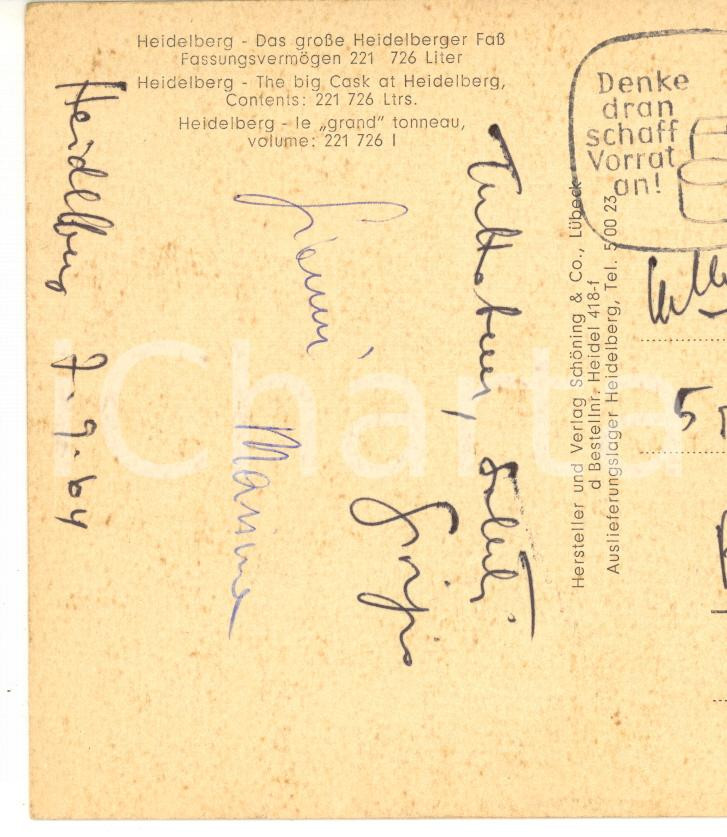 Heidelberg - Das große Heidelberger Faß
Fassungsvermögen 221 726 Liter
Heidelberg - The big Cask at Heidelberg,
Contents: 221 726 Ltrs.
Heidelberg - le „grand” tonneau,
volume: 221 726 l
Denke
dran
schaff
Vorrat
an!
Heidelberg 7.9.64
saluti
Gianni
Hersteller und Verlag Schöning & Co., Lübeck
d Bestellnr. Heidel 418-f
Auslieferungslager Heidelberg, Tel. 5 00 23
5
iCharta